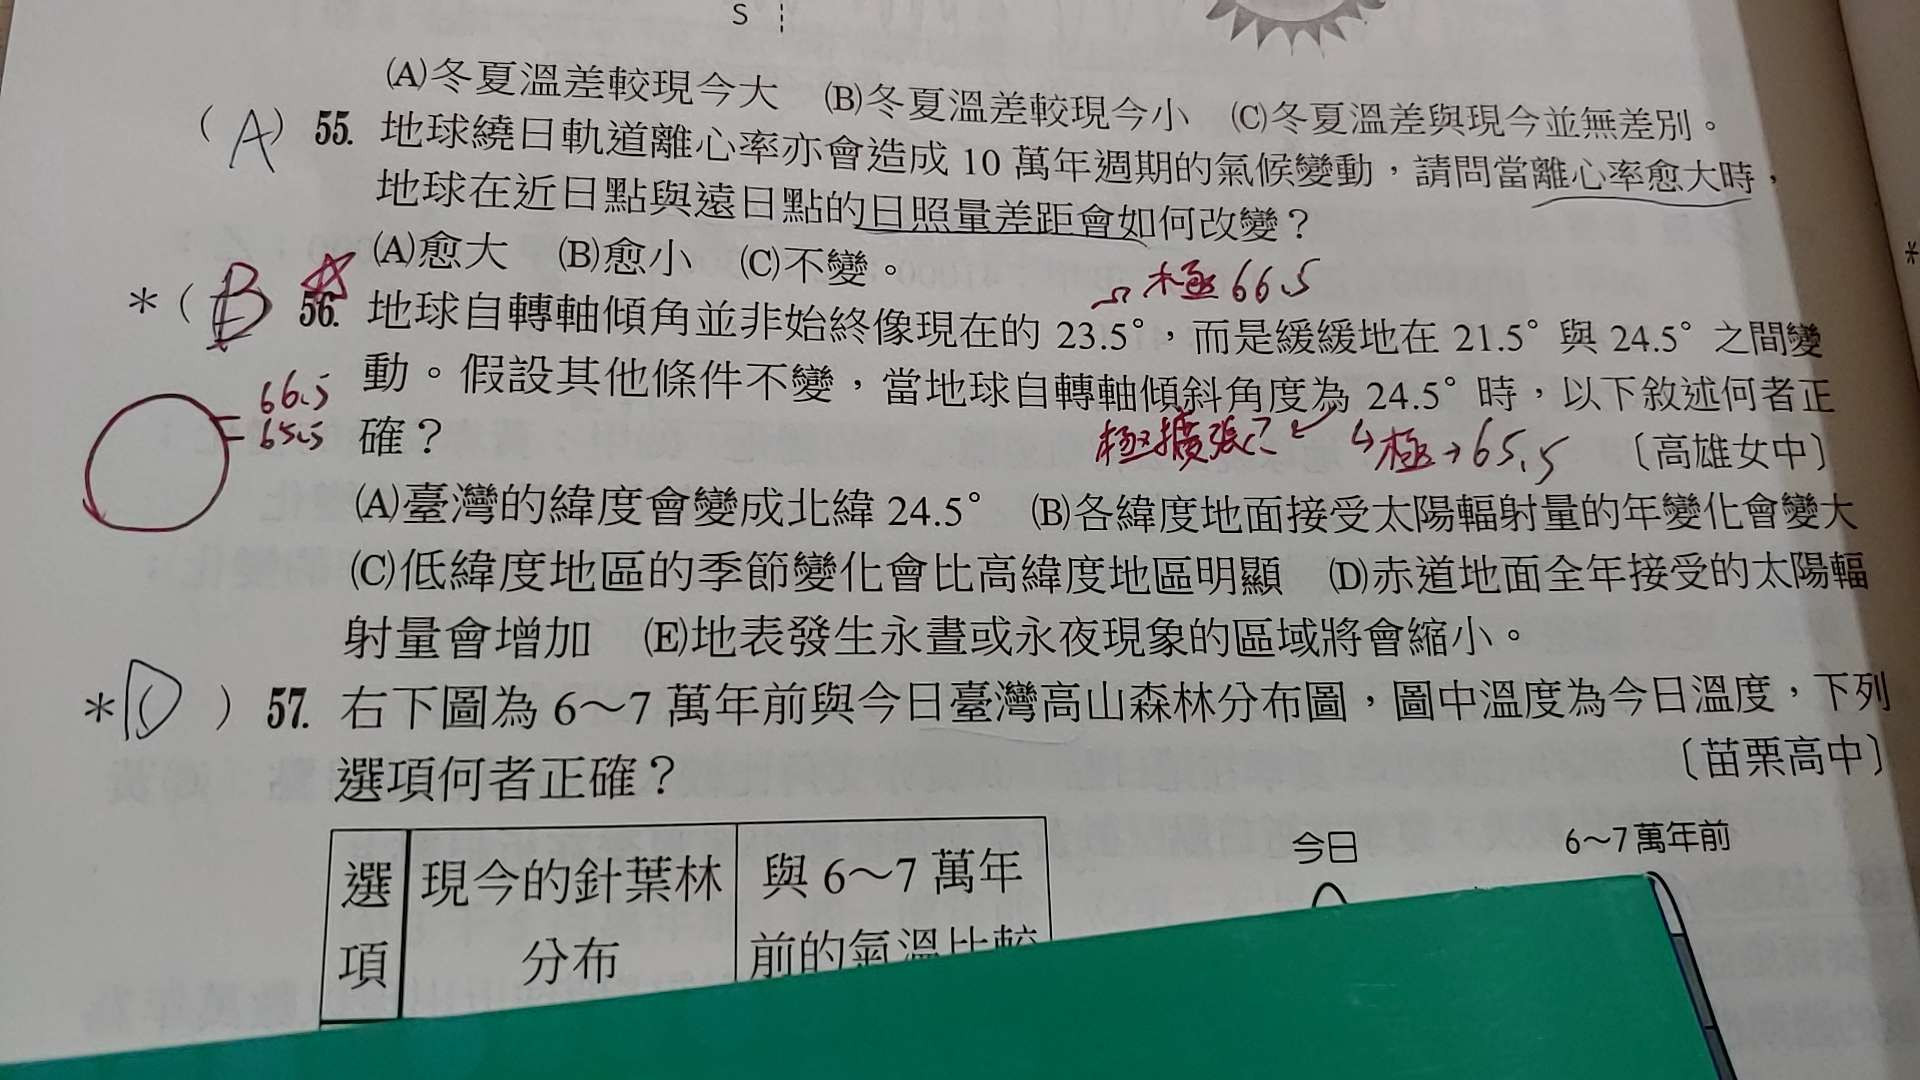 S
(A)冬夏溫差較現今大 (B)冬夏溫差較現今小 (C)冬夏溫差與現今並無差別。
(A) 55. 地球繞日軌道離心率亦會造成 10 萬年週期的氣候變動,請問當離心率愈大時,
地球在近日點與遠日點的日照量差距會如何改變?
(A)愈大 (B)愈小 (C)不變。
極66.5
*(B 56. 地球自轉軸傾角並非始終像現在的 23.5°,而是緩緩地在 21.5° 與 24.5° 之間變
66.5
動。假設其他條件不變,當地球自轉軸傾斜角度為 24.5° 時,以下敘述何者正
65.5
確? 極擴張? 極→65.5 〔高雄女中〕
(A)臺灣的緯度會變成北緯 24.5° (B)各緯度地面接受太陽輻射量的年變化會變大
(C)低緯度地區的季節變化會比高緯度地區明顯 (D)赤道地面全年接受的太陽輻
射量會增加 (E)地表發生永晝或永夜現象的區域將會縮小。
*D ) 57. 右下圖為 6～7 萬年前與今日臺灣高山森林分布圖,圖中溫度為今日溫度,下列
選項何者正確? 〔苗栗高中〕
選項 現今的針葉林
分布 與 6～7 萬年
前的氣溫比較
今日 6～7 萬年前